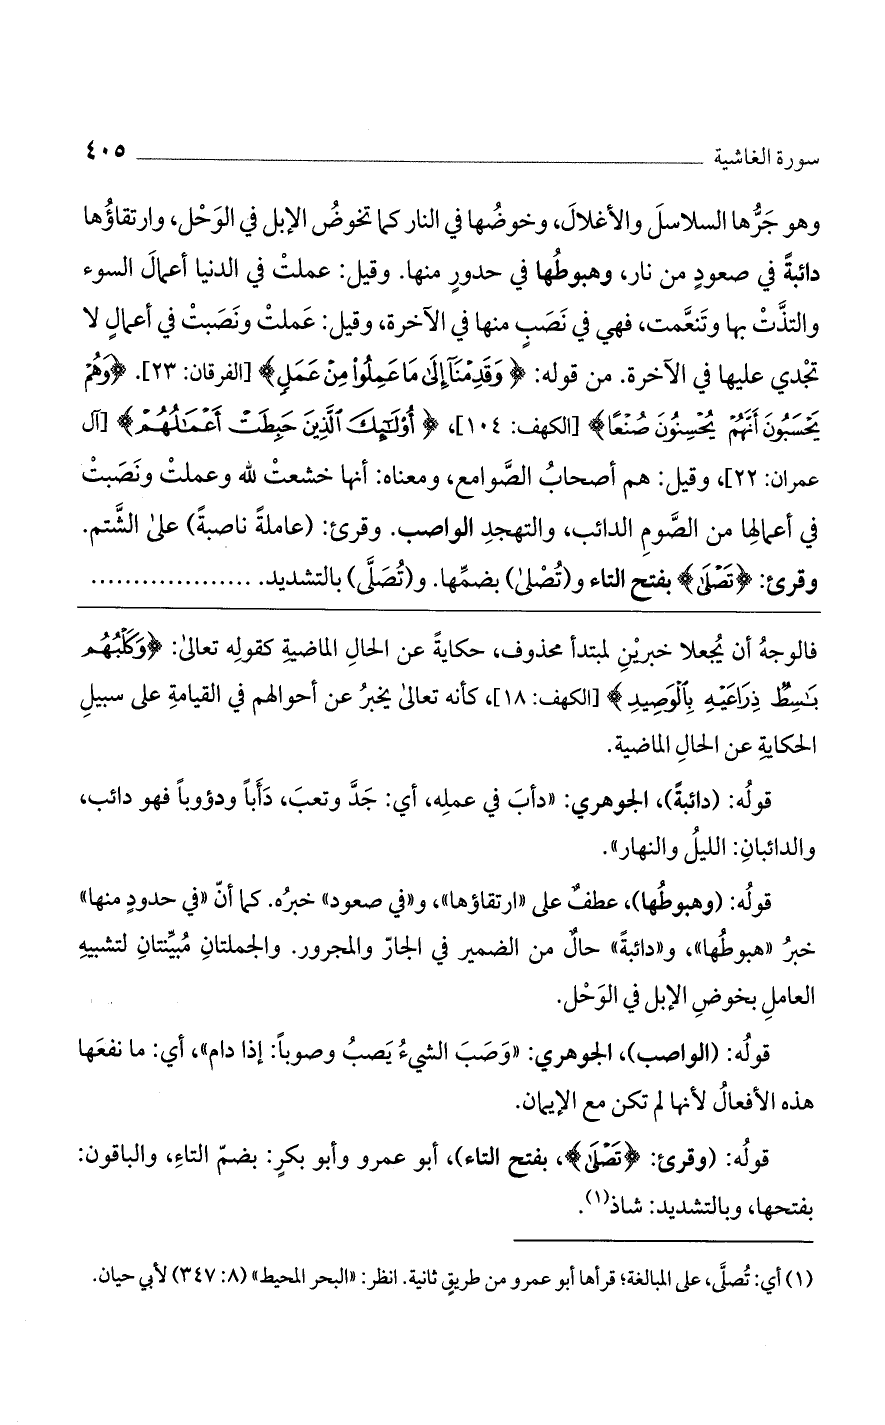 سورة الغاشية ٤٠٥
وهو جَرُّها السلاسلَ والأغلالَ، وخوضُها في النار كما تخوضُ الإبل في الوَحْل، وارتقاؤُها
دائبةً في صعودٍ من نار، وهبوطُها في حدورٍ منها. وقيل: عملتْ في الدنيا أعمالَ السوء
والتذَّتْ بها وتَنعَّمت، فهي في نَصَبٍ منها في الآخرة، وقيل: عَملتْ ونَصَبتْ في أعمالٍ لا
تجْدي عليها في الآخرة. من قوله: ﴿ وَقَدِمْنَآ إِلَىٰ مَا عَمِلُوا۟ مِنْ عَمَلٍ﴾ [الفرقان: ٢٣]. ﴿وَهُمْ
يَحْسَبُونَ أَنَّهُمْ يُحْسِنُونَ صُنْعًا﴾ [الكهف: ١٠٤]، ﴿ أُو۟لَٰٓئِكَ ٱلَّذِينَ حَبِطَتْ أَعْمَٰلُهُمْ﴾ [آل
عمران: ٢٢]، وقيل: هم أصحابُ الصَّوامع، ومعناه: أنها خشعتْ لله وعملتْ ونَصَبتْ
في أعمالِها من الصَّومِ الدائب، والتهجدِ الواصب. وقرئ: (عاملةً ناصبةً) علىٰ الشَّتم.
وقرئ: ﴿تَصْلَىٰ﴾ بفتح التاء و(تُصْلىٰ) بضمِّها. و(تُصَلَّى) بالتشديد. ...................
فالوجهُ أن يُجعلا خبريْنِ لمبتدأ محذوف، حكايةً عن الحالِ الماضيةِ كقولِه تعالىٰ: ﴿وَكَلْبُهُم
بَٰسِطٌ ذِرَاعَيْهِ بِٱلْوَصِيدِ ﴾ [الكهف: ١٨]، كأنه تعالىٰ يخبرُ عن أحوالهم في القيامةِ على سبيلِ
الحكايةِ عن الحالِ الماضية.
قولُه: (دائبةً)، الجوهري: «دأبَ في عملِه، أي: جَدَّ وتعبَ، دَأَباً ودؤوباً فهو دائب،
والدائبانِ: الليلُ والنهار».
قولُه: (وهبوطُها)، عطفٌ على «ارتقاؤها»، و«في صعود» خبرُه. كما أنّ «في حدودٍ منها»
خبرُ «هبوطُها»، و«دائبةً» حالٌ من الضمير في الجارّ والمجرور. والجملتانِ مُبيِّنتانِ لتشبيهِ
العاملِ بخوضِ الإبل في الوَحْل.
قولُه: (الواصب)، الجوهري: «وَصَبَ الشيءُ يَصبُ وصوباً: إذا دام»، أي: ما نفعَها
هذه الأفعالُ لأنها لم تكن مع الإيمان.
قولُه: (وقرئ: ﴿تَصْلَىٰ﴾، بفتح التاء)، أبو عمرو وأبو بكرٍ: بضمّ التاءِ، والباقون:
بفتحها، وبالتشديد: شاذ(١).
(١) أي: تُصلَّى، على المبالغة؛ قرأها أبو عمرو من طريقٍ ثانية. انظر: «البحر المحيط» (٨: ٣٤٧) لأبي حيان.